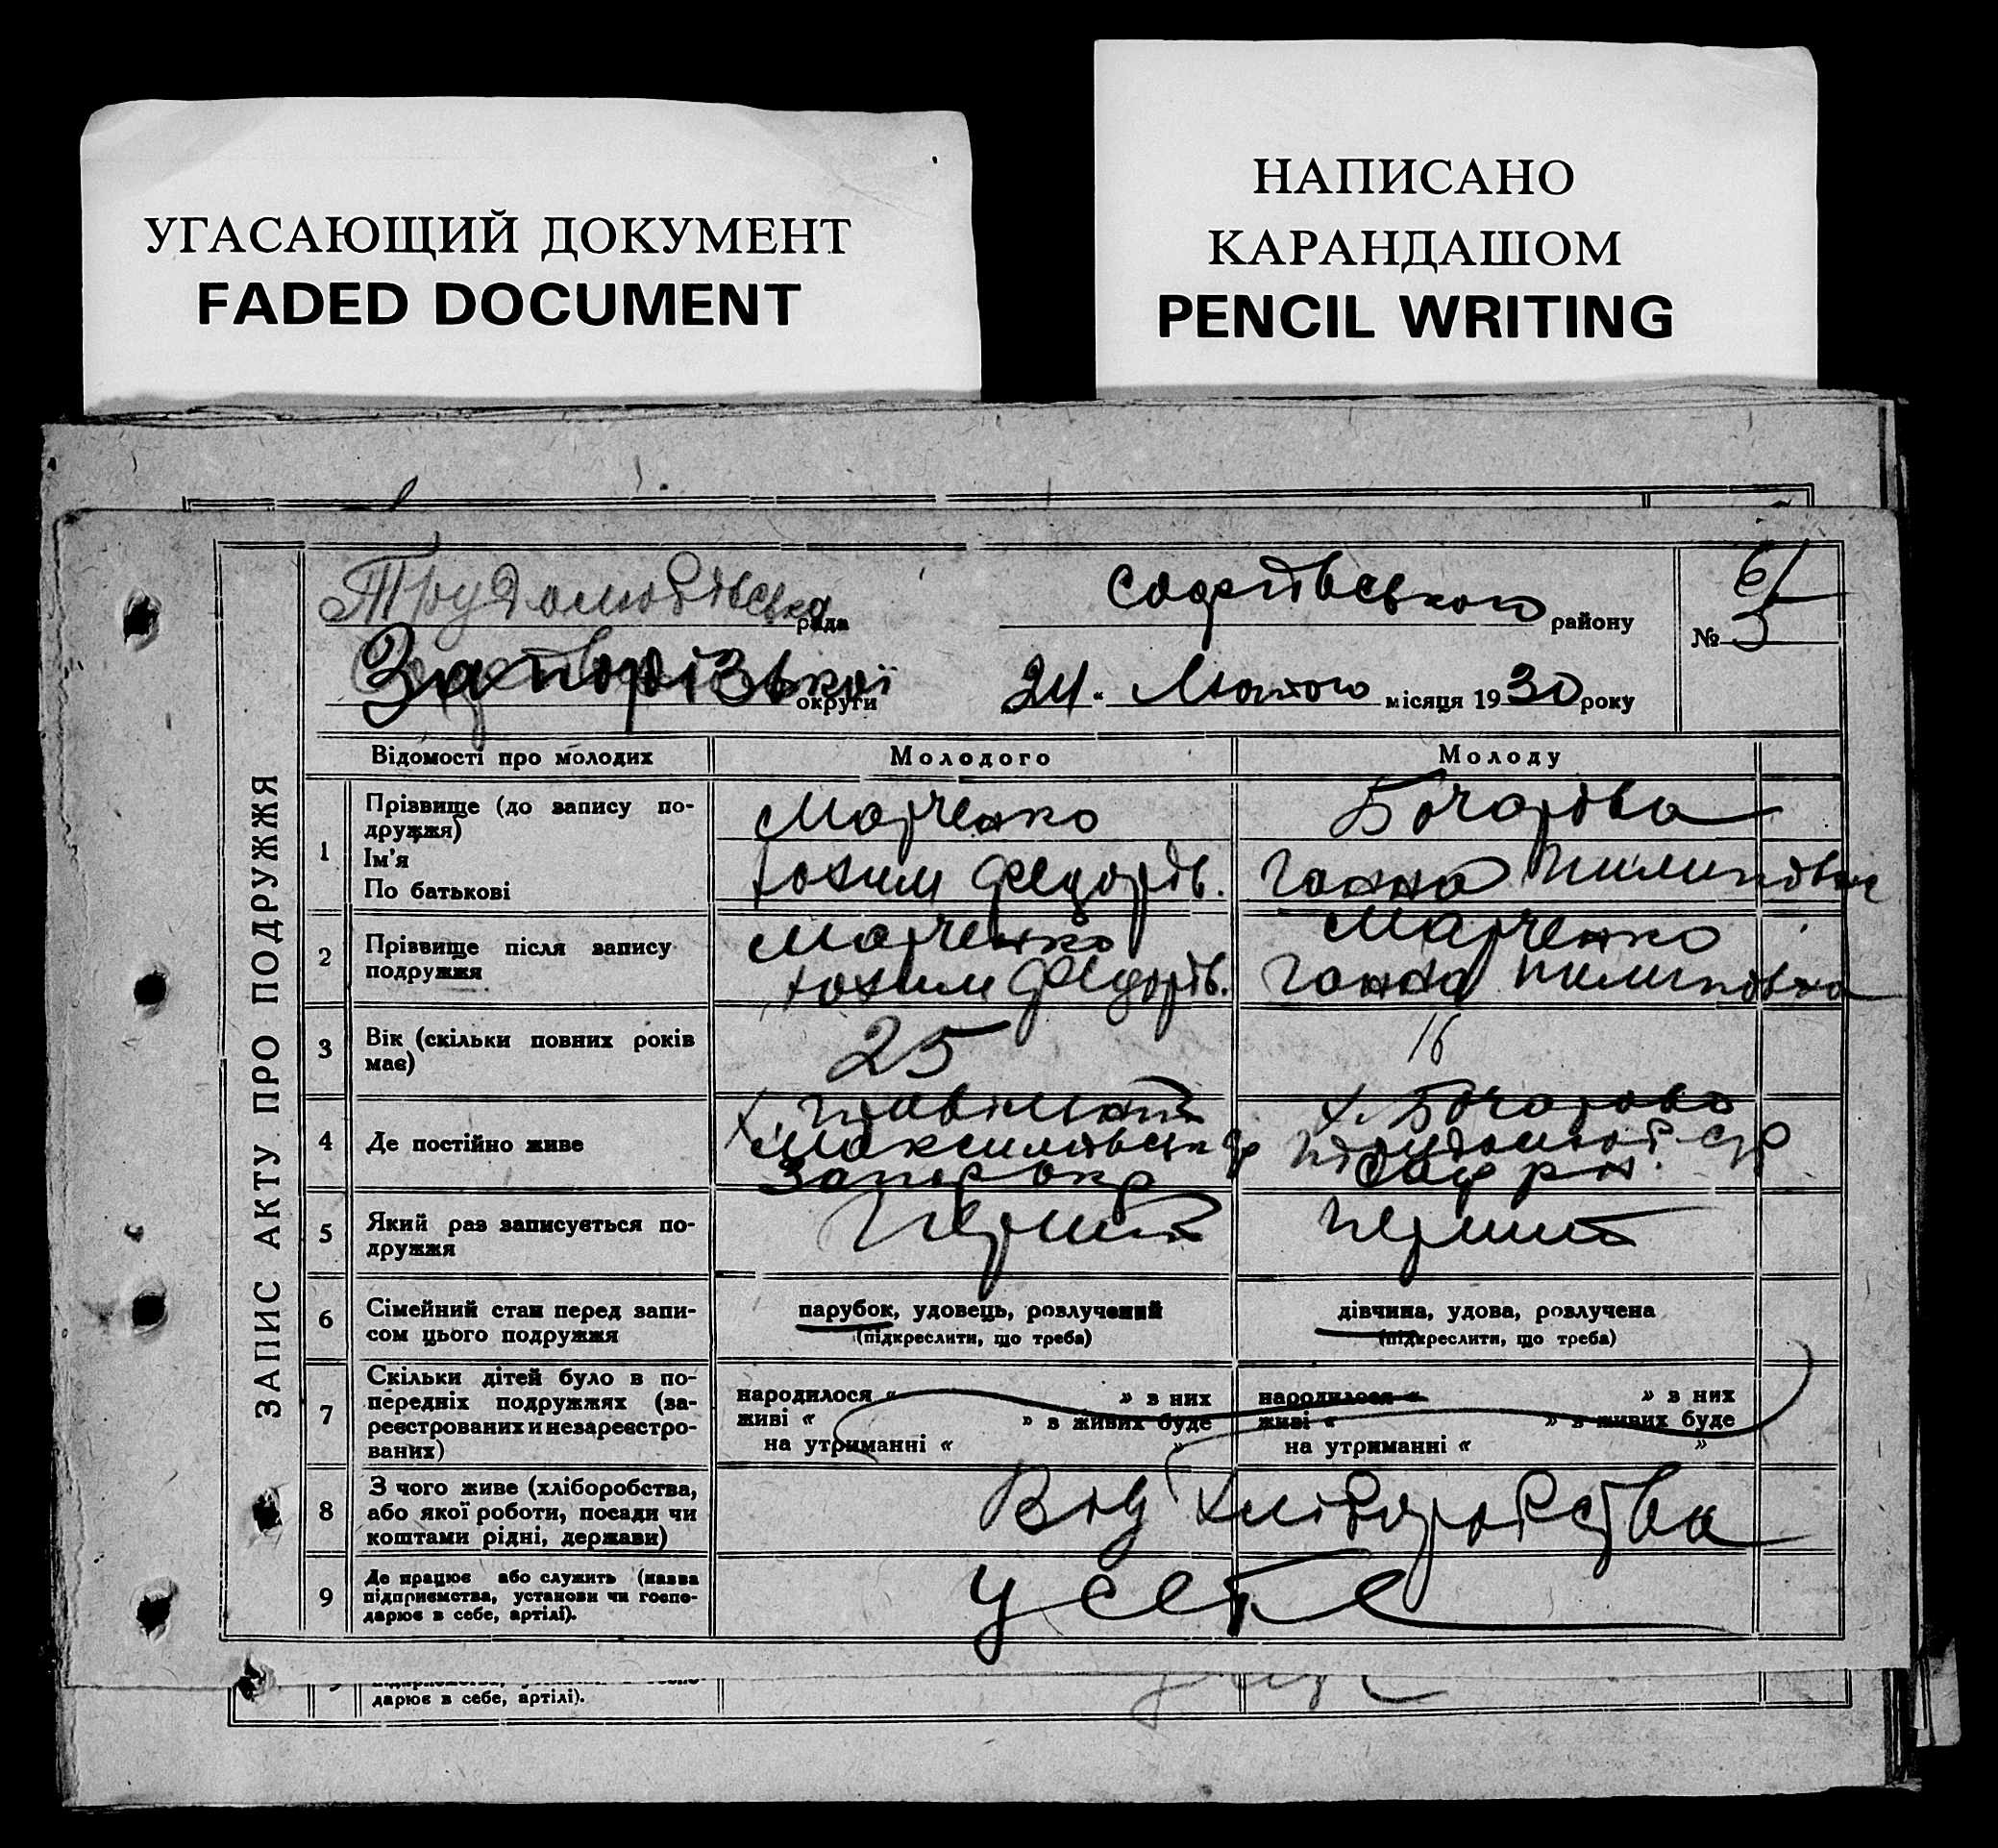 УГАСАЮЩИЙ ДОКУМЕНТ
FADED DOCUMENT
НАПИСАНО
КАРАНДАШОМ
PENCIL WRITING
ЗАПИС АКТУ ПРО ПОДРУЖЖЯ
Трудолюбівська рада
Софіївського району
№ 5
Запорізької округи
24 « Лютого місяця 1930 року
Відомості про молодих Молодого Молоду
1 Прізвище (до запису по-
дружжя)
Ім'я
По батькові
Марченко
Юхим Федорів.
Бочарова
Ганна Пилиповна
2 Прізвище після запису
подружжя
Марченко
Юхим Федорів.
Марченко
Ганна Пилиповна
3 Вік (скільки повних років
має)
25 16
4 Де постійно живе
х.
Запор окр
х. Бочарово
Соф рн.
5 Який раз записується по-
дружжя
Перший Перший
6 Сімейний стан перед запи-
сом цього подружжя
парубок, удовець, розлучений
(підкреслити, що треба)
дівчина, удова, розлучена
(підкреслити, що треба)
7 Скільки дітей було в по-
передніх подружжях (за-
реєстрованих и незареєстро-
ваних)
народилося « » з них
живі « » з живих буде
на утриманні « »
народилося « » з них
живі « » з живих буде
на утриманні « »
8 З чого живе (хліборобства,
або якої роботи, посади чи
коштами рідні, держави)
Від хліборобства
9 Де працює або служить (назва
підприємства, установи чи госпо-
дарює в себе, артілі).
У себе
дарює в себе, артілі).